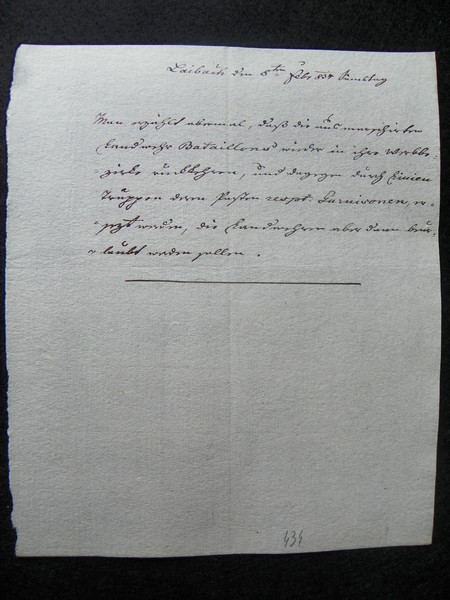 Laibach den 8ten Febr 834 Samstag
Man erzählt abermal, daß die ausmarschirten
Landwehr Bataillons wieder in ihre Werbbe-
-zirke rückkehren, und dagegen durch Linien
Truppen deren Posten respt. Garnisonen, er-
-sezt werden, die Landwehren aber dann beur-
-laubt werden sollen.
434